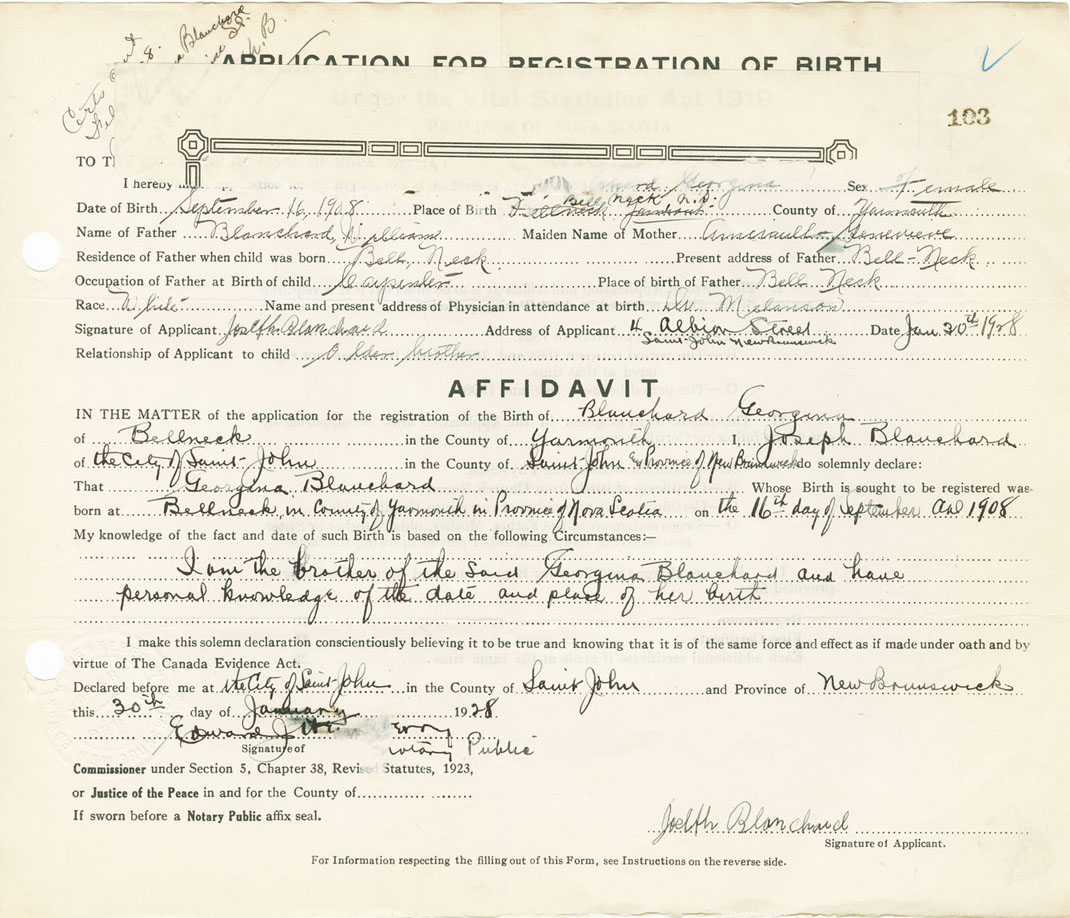 Blanchard
St.
N.B.
APPLICATION FOR REGISTRATION OF BIRTH
Under the Vital Statistics Act 1919
PROVINCE OF NOVA SCOTIA.
103
TO T
I hereby Georgina Sex Female
Date of Birth September 16, 1908 Place of Birth Bell Neck N.S. County of Yarmouth
Name of Father Blanchard, William Maiden Name of Mother Amirault Genevieve
Residence of Father when child was born Bell Neck Present address of Father Bell-Neck
Occupation of Father at Birth of child Carpenter Place of birth of Father Bell Neck
Race White Name and present address of Physician in attendance at birth Dr. Melanson
Signature of Applicant Joseph Blanchard Address of Applicant 4 Albion Street Date Jan 30th 1928
Saint John New Brunswick
Relationship of Applicant to child Older brother
AFFIDAVIT
IN THE MATTER of the application for the registration of the Birth of Blanchard Georgina
of Bellneck in the County of Yarmouth I, Joseph Blanchard
of the City of Saint John in the County of Saint John & Province of New Brunswick do solemnly declare:
That Georgina Blanchard Whose Birth is sought to be registered was
born at Bellneck in County of Yarmouth in Province of Nova Scotia on the 16th day of September AD 1908
My knowledge of the fact and date of such Birth is based on the following Circumstances:—
I am the brother of the said Georgina Blanchard and have
personal knowledge of the date and place of her birth
I make this solemn declaration conscientiously believing it to be true and knowing that it is of the same force and effect as if made under oath and by
virtue of The Canada Evidence Act.
Declared before me at the City of Saint John in the County of Saint John and Province of New Brunswick
this 30th day of January 1928
Edward J
Signature of Notary Public
Commissioner under Section 5, Chapter 38, Revised Statutes, 1923,
or Justice of the Peace in and for the County of
If sworn before a Notary Public affix seal.
Joseph Blanchard
Signature of Applicant.
For Information respecting the filling out of this Form, see Instructions on the reverse side.